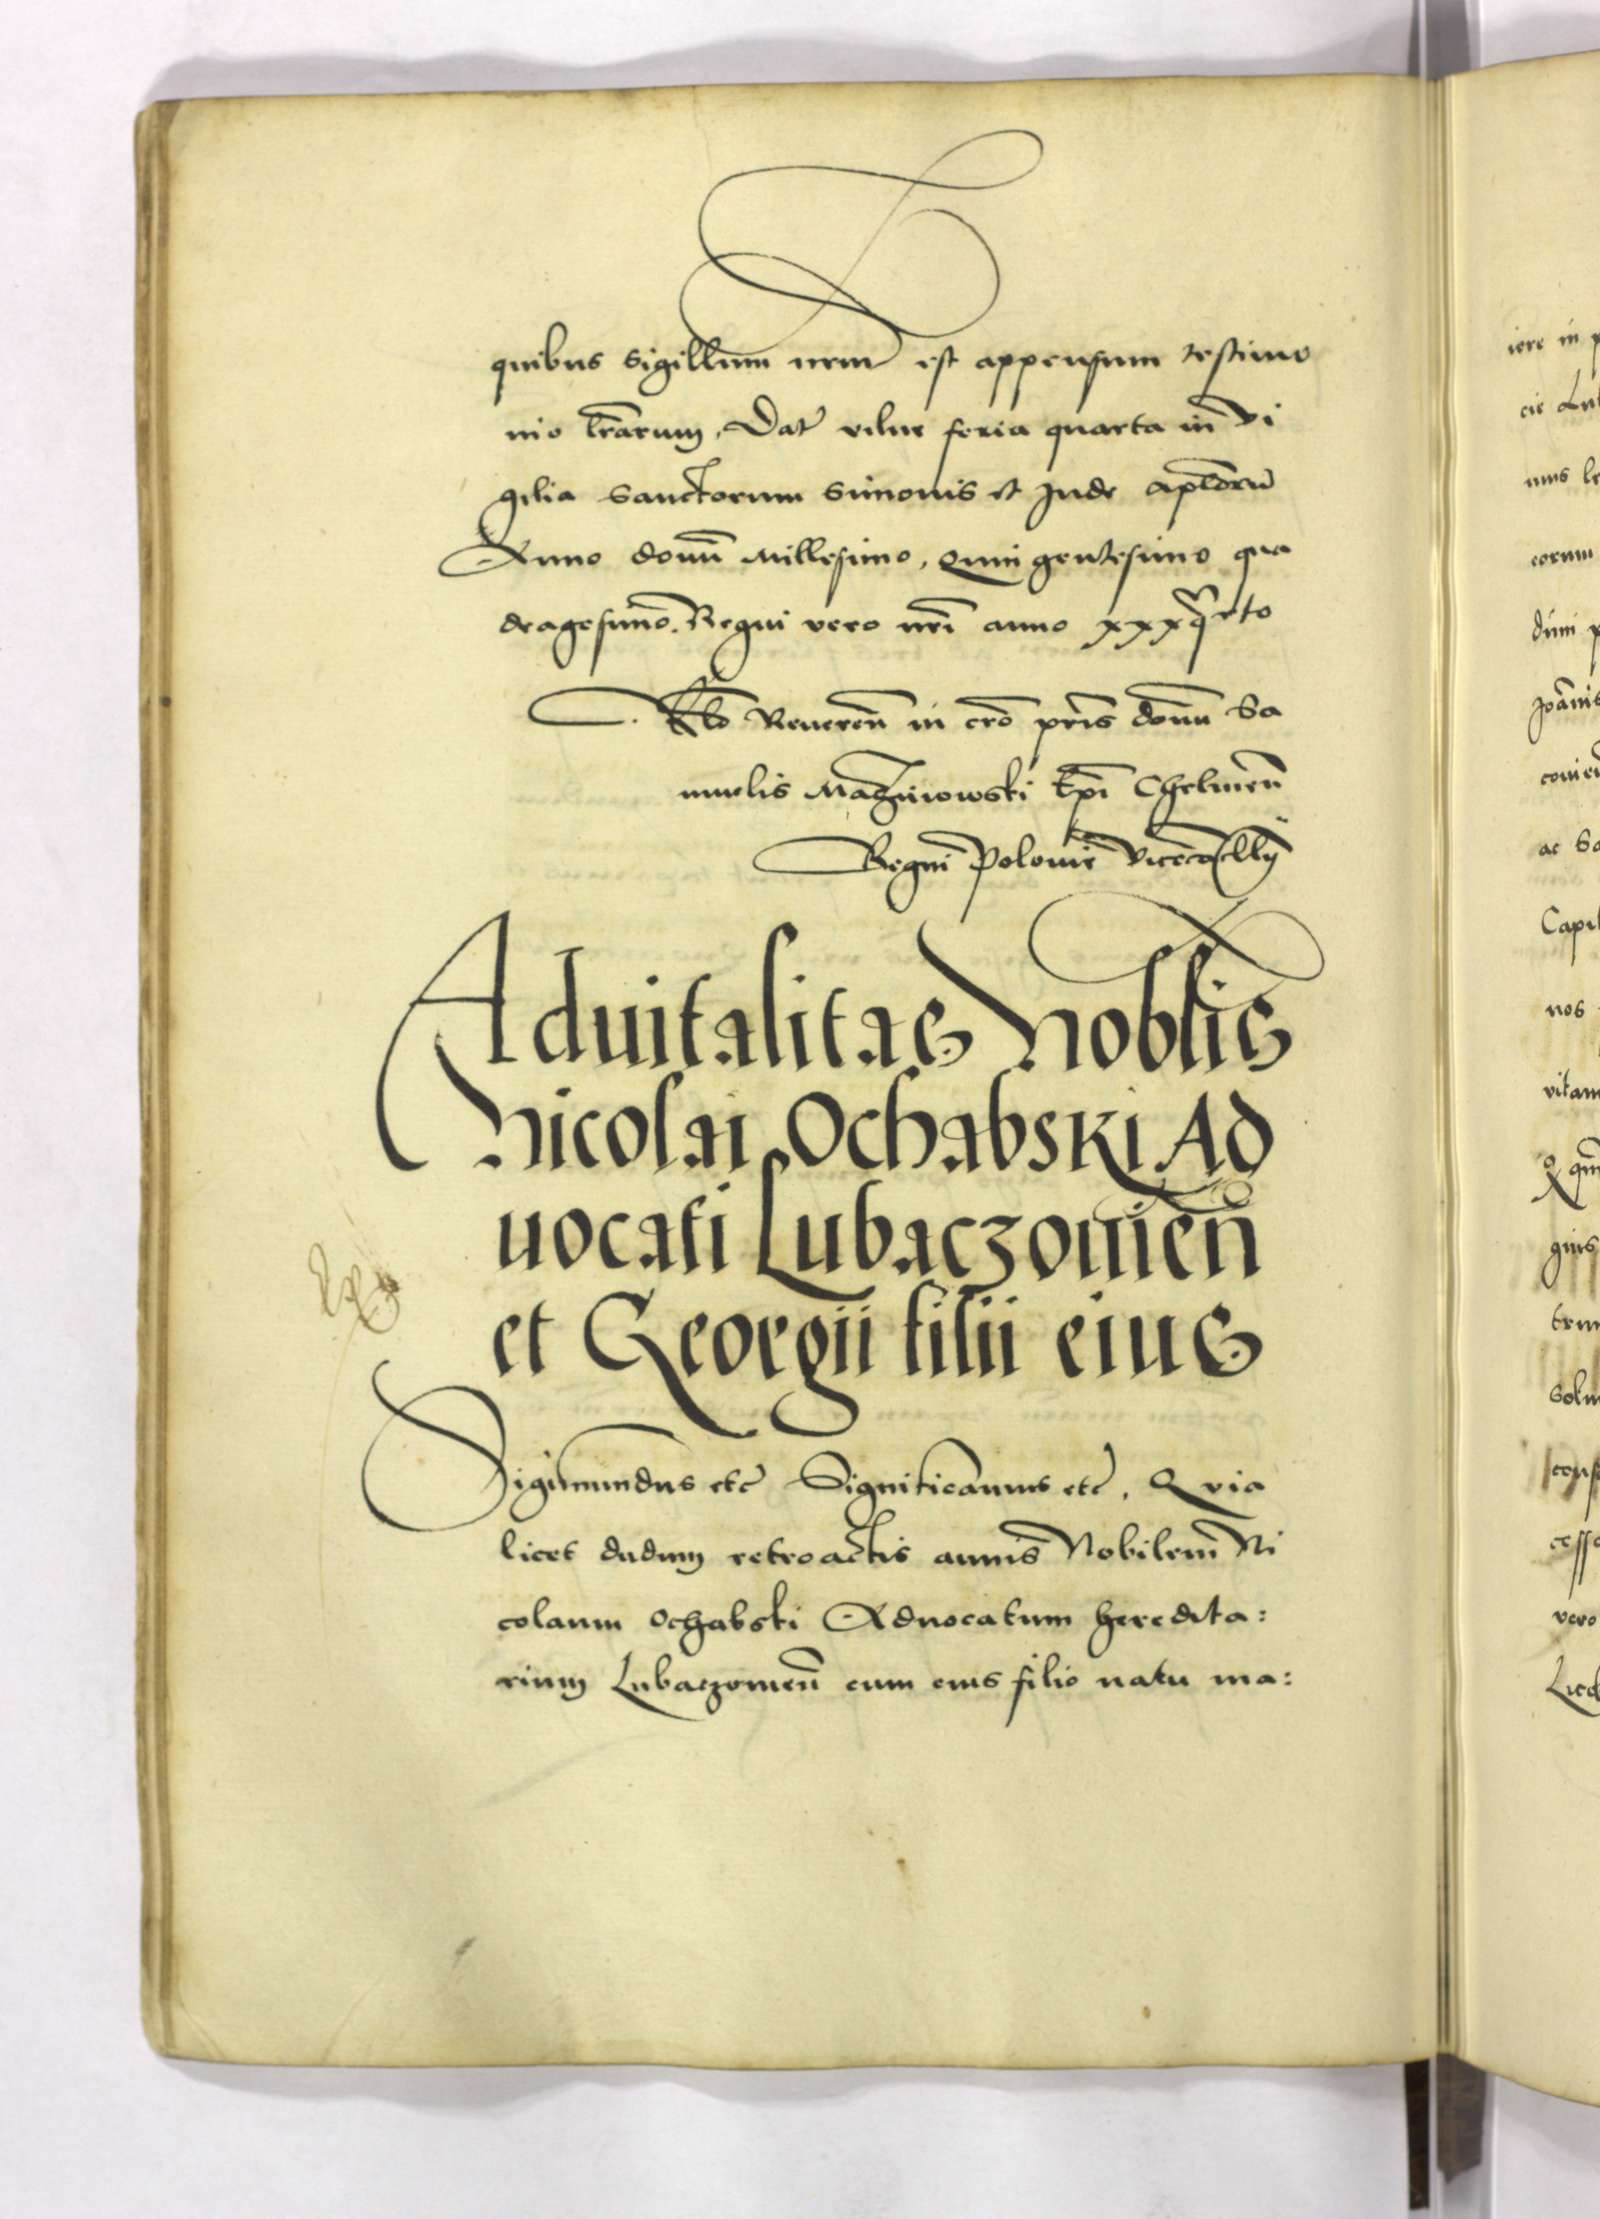 quibus sigillum nrm est appensum testimo
nio lrarum, Dat vilne feria quarta in vi
gilia sanctorum simonis et Jude aplorum
Anno domi Millesimo, Quingentesimo qua
dragesimo. Regni vero nri anno xxxqrto
Rlo Reueren in cro pris domi Sa
muelis Maczieiowski Epi Chelmen
Regni Polonie vicecacllij
Aduitalitas Noblis
Nicolai Ochabski Ad
uocati Lubaczouien
et Georgii filii eius
Sigismundus etc Significamus etc, Quia
licet dudum retroactis annis Nobilem Ni
colaum Ochabski Aduocatum heredita:
rium Lubaczouien cum eius filio natu ma: